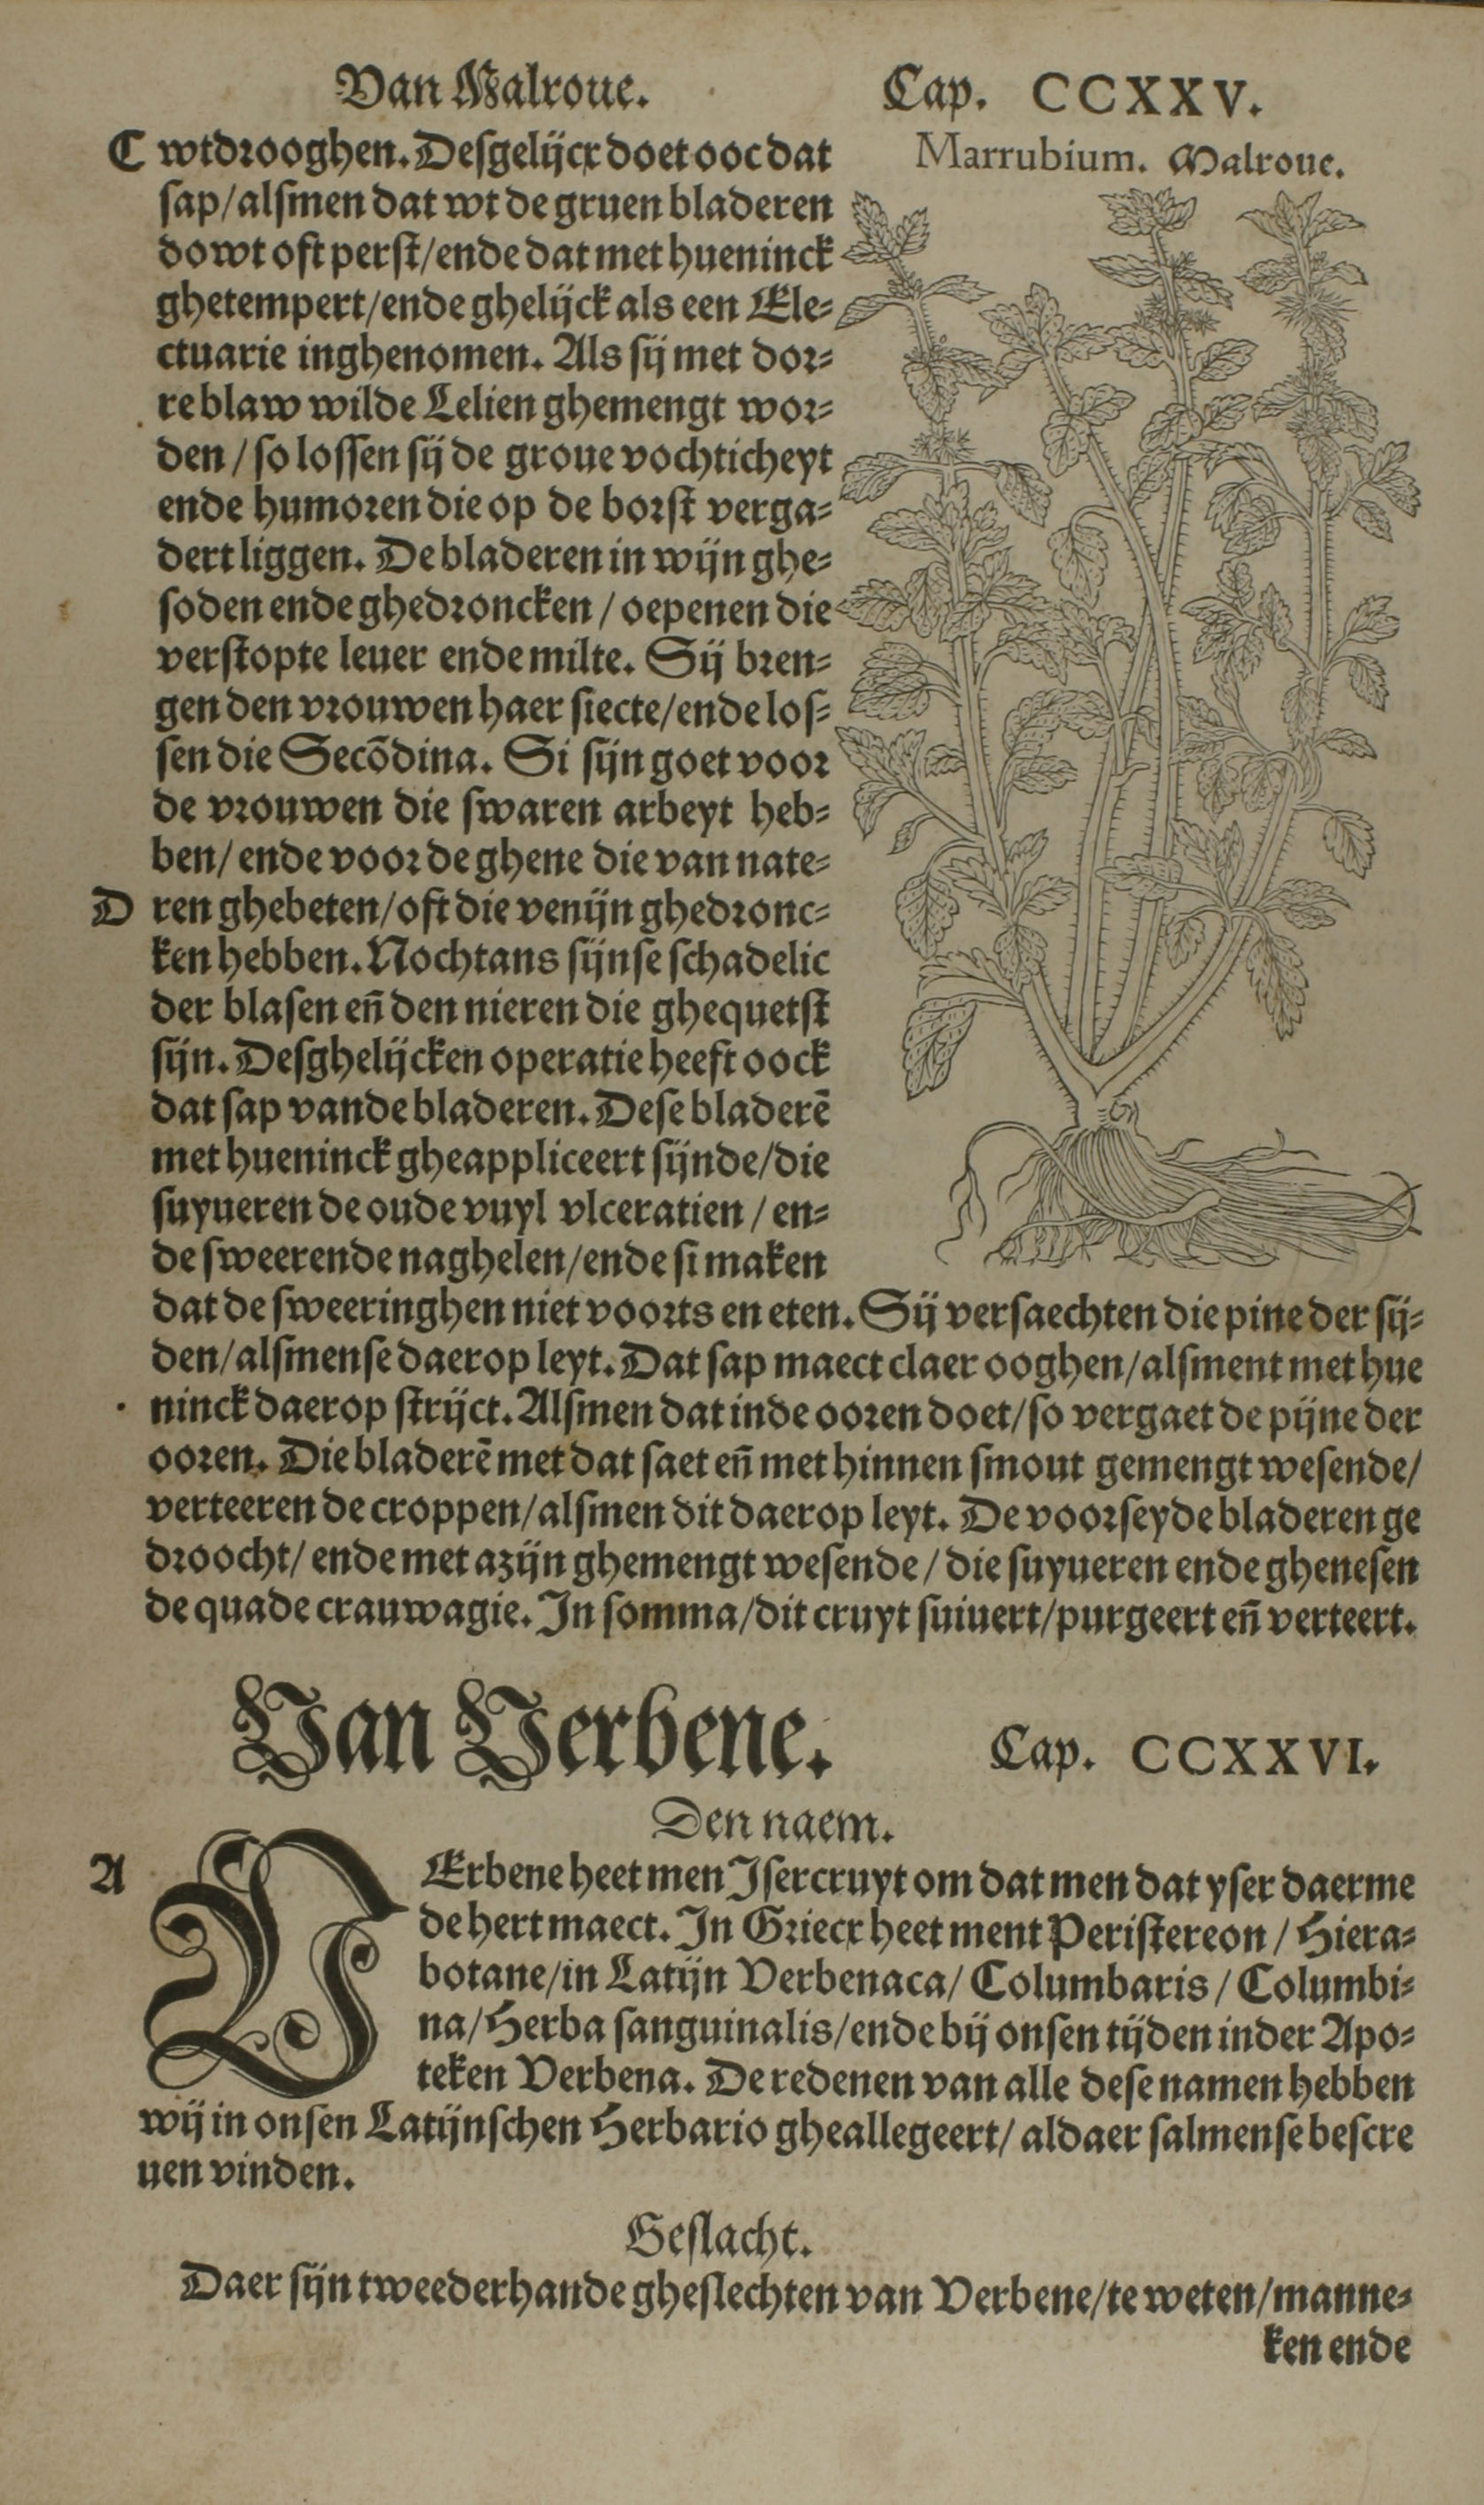 Van Malroue. Cap. CCXXV.
Marrubium. Malroue.
C wtdrooghen. Desgelijcx doet ooc dat
sap/alsmen dat wt de gruen bladeren
dowt oft perst/ende dat met hueninck
ghetempert/ende ghelijck als een Ele-
ctuarie inghenomen. Als sij met dor-
re blaw wilde Lelien ghemengt wor-
den/so lossen sij de groue vochticheyt
ende humoren die op de borst verga-
dert liggen. De bladeren in wijn ghe-
soden ende ghedroncken/oepenen die
verstopte leuer ende milte. Sij bren-
gen den vrouwen haer siecte/ende los-
sen die Secõdina. Si sijn goet voor
de vrouwen die swaren arbeyt heb-
ben/ende voor de ghene die van nate-
D ren ghebeten/oft die venijn ghedronc-
ken hebben. Nochtans sijnse schadelic
der blasen eñ den nieren die ghequetst
sijn. Desghelijcken operatie heeft oock
dat sap vande bladeren. Dese bladerẽ
met hueninck gheappliceert sijnde/die
suyueren de oude vuyl vlceratien/en-
de sweerende naghelen/ende si maken
dat de sweeringhen niet voorts en eten. Sij versaechten die pine der sij-
den/alsmense daerop leyt. Dat sap maect claer ooghen/alsment met hue
ninck daerop strijct. Alsmen dat inde ooren doet/so vergaet de pijne der
ooren. Die bladerẽ met dat saet eñ met hinnen smout gemengt wesende/
verteeren de croppen/alsmen dit daerop leyt. De voorseyde bladeren ge
droocht/ende met azijn ghemengt wesende/die suyueren ende ghenesen
de quade crauwagie. In somma/dit cruyt suiuert/purgeert eñ verteert.
Van Verbene. Cap. CCXXVI.
Den naem.
A VErbene heet men Isercruyt om dat men dat yser daerme
de hert maect. In Griecx heet ment Peristereon/Hiera-
botane/in Latijn Verbenaca/Columbaris/Columbi-
na/Herba sanguinalis/ende bij onsen tijden inder Apo-
teken Verbena. De redenen van alle dese namen hebben
wij in onsen Latijnschen Herbario gheallegeert/aldaer salmense bescre
uen vinden.
Geslacht.
Daer sijn tweederhande gheslechten van Verbene/te weten/manne-
ken ende